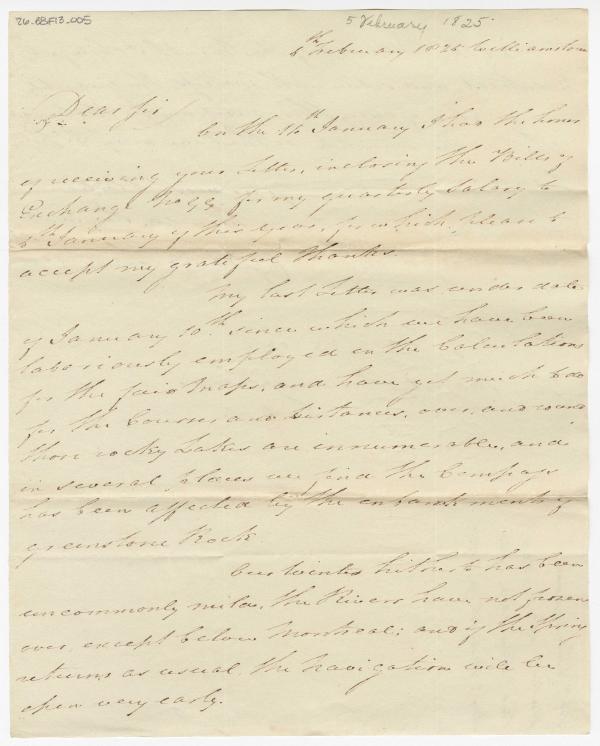 26.BBF13.005
5 February 1825.
5th February 1825 Williamstown
Dear Sir
On the 16th January I had the honor
of receiving your Letter, inclosing the Bills of
Exchange No for my quarterly Salary to
5th January of this year, for which please to
accept my grateful thanks.
My last Letter was under date
of January 10th since which we have been
laboriously employed in the Calculations
for the fair Maps, and have yet much to do
for the Courses and Distances, over, and round
those rocky Lakes are innumerable, and
in several places we find the Compass
has been affected by the embankments of
greenstone Rock.
Our winter hitherto has been
uncommonly mild, the Rivers have not frozen
over, except below Montreal; and if the Spring
returns as usual, the Navigation will be
open very early.